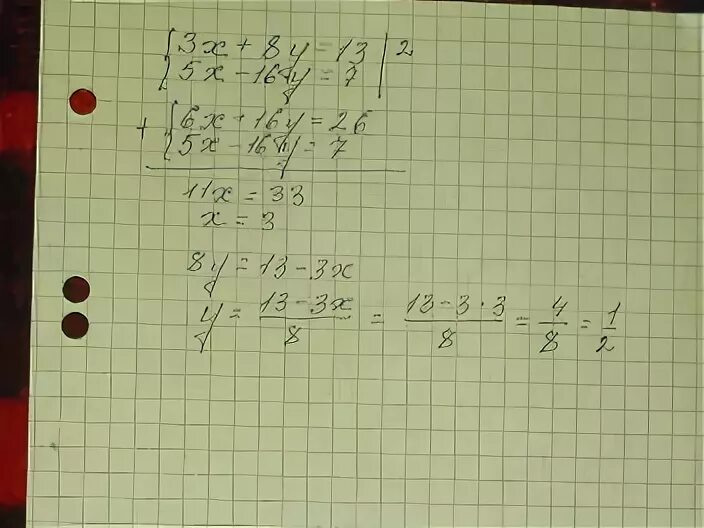 {3x + 8y = 13 | 2
{5x - 16y = 7
+ {6x + 16y = 26
{5x - 16y = 7
11x = 33
x = 3
8y = 13 - 3x
y = (13 - 3x)/8 = (13 - 3 · 3)/8 = 4/8 = 1/2